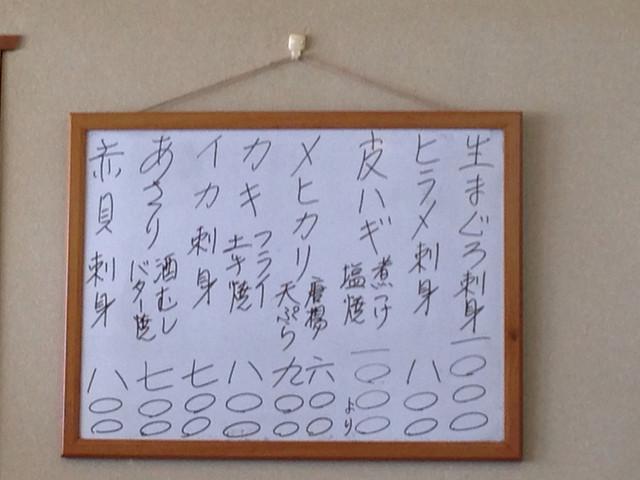 生まぐろ刺身 一〇〇〇
ヒラメ刺身 八〇〇
皮ハギ 煮つけ 塩焼 一〇〇〇より
メヒカリ 唐揚 六〇〇 天ぷら 九〇〇
カキ フライ 土手焼 八〇〇
イカ刺身 七〇〇
あさり 酒むし バター焼 七〇〇
赤貝刺身 八〇〇